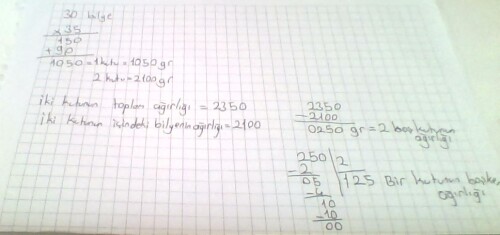 30 bilye
x 35
150
+ 90
1050 = 1 kutu = 1050 gr
2 kutu = 2100 gr
iki kutunun toplam ağırlığı = 2350
iki kutunun içindeki bilyenin ağırlığı = 2100
2350
- 2100
0250 gr = 2 boş kutunun ağırlığı
250 | 2
- 2
125 Bir kutunun
ağırlığı
05
- 4
10
- 10
00